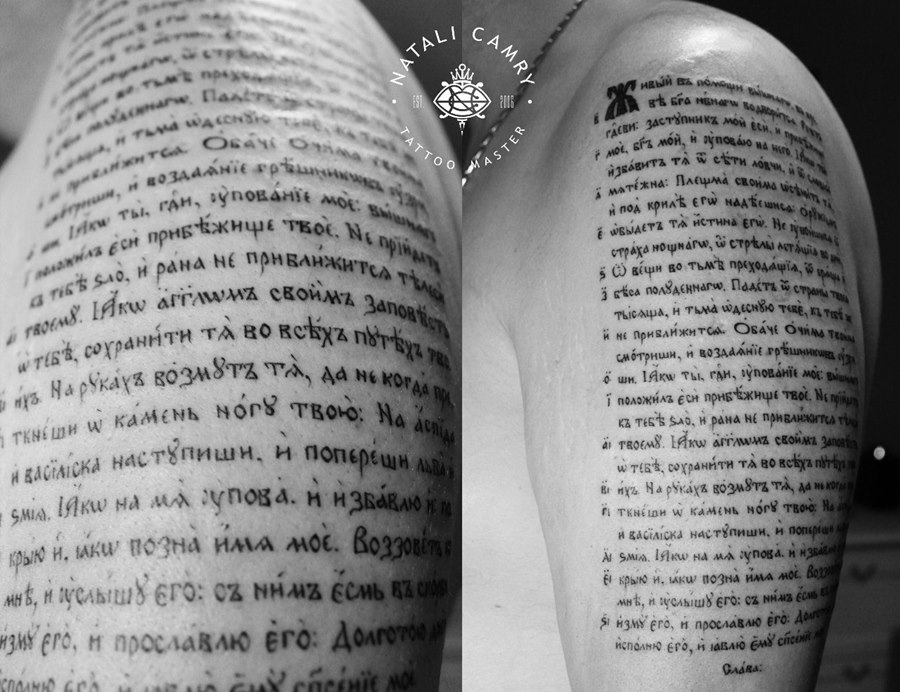 NATALI CAMRY
EST. 2006
TATTOO MASTER
тьмѣ преход
полуденнагѡ. Падетъ ѿ
и тьма ѡдесную тебе,
приближитсѧ. Ѻбаче Ѻчима
смотриши, и воздаѧнїе грѣшникѡвъ
ши. Ꙗ҆́кѡ ты, гдⷭ҇и, ᲂупованїе мое: вышнѧго
положилъ еси прибѣжище твое. Не прїидетъ
къ тебѣ ѕло, и рана не приближитсѧ тѣлеси
твоемꙋ. Ꙗ҆́кѡ а҆́гг҃лѡмъ своимъ заповѣсть
ѡ тебѣ, сохранити тѧ во всѣхъ путѣхъ
ихъ. На рꙋкахъ возмꙋтъ тѧ, да не когда
ткнеши ѡ камень ногꙋ твою: На аспида
и васїлїска настꙋпиши, и попереши льва и
ѕмїѧ. Ꙗ҆́кѡ на мѧ ᲂупова, и избавлю и
крыю и, ꙗкѡ позна имѧ мое. Воззоветъ
мнѣ, и ᲂуслышꙋ его: съ нимъ есмь въ скорби
измꙋ его, и прославлю его: Долготою
исполню его, и ꙗвлю емꙋ сп҃сенїе мое
Живый въ помощи вышнѧгѡ,
вѣ бг҃а нб҃нагѡ водворитсѧ. Рече
гдⷭ҇еви: застꙋпникъ мой еси, и прибѣж
г мое, бг҃ъ мой, и ᲂуповаю на него. Ꙗ҆́кѡ
избавитъ тѧ ѿ сѣти ловчи, и ѿ словес
д мѧтежна: Плещма своима ѡсѣнитъ
и под крилѣ егѡ надѣешисѧ: Орꙋж
е ѡбыдетъ тѧ истина егѡ. Не ᲂубоишисѧ
страха нощнагѡ, ѿ стрѣлы летѧщїѧ во
ѕ Ѿ вещи во тьмѣ преходѧщїѧ, ѿ срѧща
з бѣса полꙋденнагѡ. Падетъ ѿ страны твоеѧ
тысѧща, и тьма ѡдеснꙋю тебе, къ тебѣ
и не приближитсѧ. Ѻбаче Ѻчима твоима
смотриши, и воздаѧнїе грѣшникѡвъ ᲂузри
ѳ ши. Ꙗ҆́кѡ ты, гдⷭ҇и, ᲂупованїе мое: вышнѧго
ї положилъ еси прибѣжище твое. Не прїидетъ
къ тебѣ ѕло, и рана не приближитсѧ тѣле
аї твоемꙋ. Ꙗ҆́кѡ а҆́гг҃лѡмъ своимъ заповѣсть
ѡ тебѣ, сохранити тѧ во всѣхъ путѣхъ
вї ихъ. На рꙋкахъ возмꙋтъ тѧ, да не когда
гї ткнеши ѡ камень ногꙋ твою: На
и васїлїска настꙋпиши, и попереши
дї ѕмїѧ. Ꙗ҆́кѡ на мѧ ᲂупова, и избавлю
еї крыю и, ꙗкѡ позна имѧ мое. Воззов
мнѣ, и ᲂуслышꙋ его: съ нимъ есмь въ скорби
ѕї измꙋ его, и прославлю его: Долготою
исполню его, и ꙗвлю емꙋ сп҃сенїе мое
Слава: